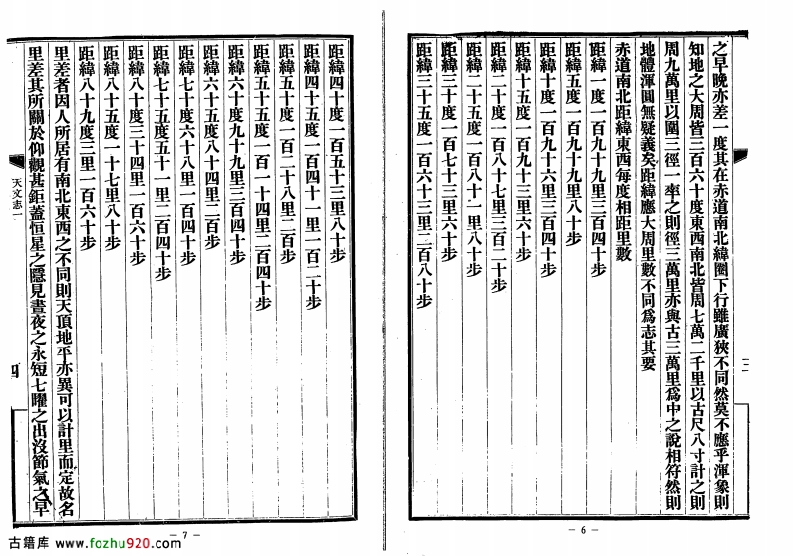 之早晚亦差一度其在赤道南北緯圈下行雖廣狹不同然莫不應乎渾象則
知地之大周皆三百六十度東西南北皆周七萬二千里以古尺八寸計之則
周九萬里以圍三徑一率之則徑三萬里亦與古三萬里爲中之說相符然則
地體渾圓無疑義矣距緯應大周里數不同爲志其要
赤道南北距緯東西每度相距里數
距緯一度一百九十九里三百四十步
距緯五度一百九十九里八十步
距緯十度一百九十六里三百四十步
距緯十五度一百九十三里六十步
距緯二十度一百八十七里三百二十步
距緯二十五度一百八十一里八十步
距緯三十度一百七十三里六十步
距緯三十五度一百六十三里二百八十步
三
— 6 —
距緯四十度一百五十三里八十步
距緯四十五度一百四十一里一百二十步
距緯五十度一百二十八里二百步
距緯五十五度一百一十四里二百四十步
距緯六十度九十九里三百四十步
距緯六十五度八十四里二百步
距緯七十度六十八里一百四十步
距緯七十五度五十一里二百四十步
距緯八十度三十四里一百六十步
距緯八十五度一十七里八十步
距緯八十九度三里一百六十步
里差者因人所居有南北東西之不同則天頂地平亦異可以計里而定故名
里差其所關於仰觀甚鉅蓋恒星之隱見晝夜之永短七曜之出沒節氣之早
天文志一
四
— 7 —
古籍库 www.fozhu920.com